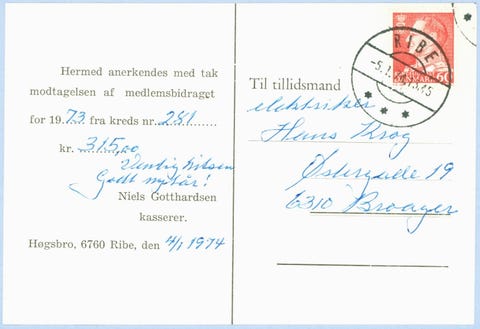 Hermed anerkendes med tak
modtagelsen af medlemsbidraget
for 1973 fra kreds nr. 281
kr. 315,00
Venlig hilsen
Godt nytår!
Niels Gotthardsen
kasserer.
Høgsbro, 6760 Ribe, den 4/1 1974
RIBE
DANMARK
60
Til tillidsmand
elektriker
Hans Krog
Østergade 19
6310 Broager